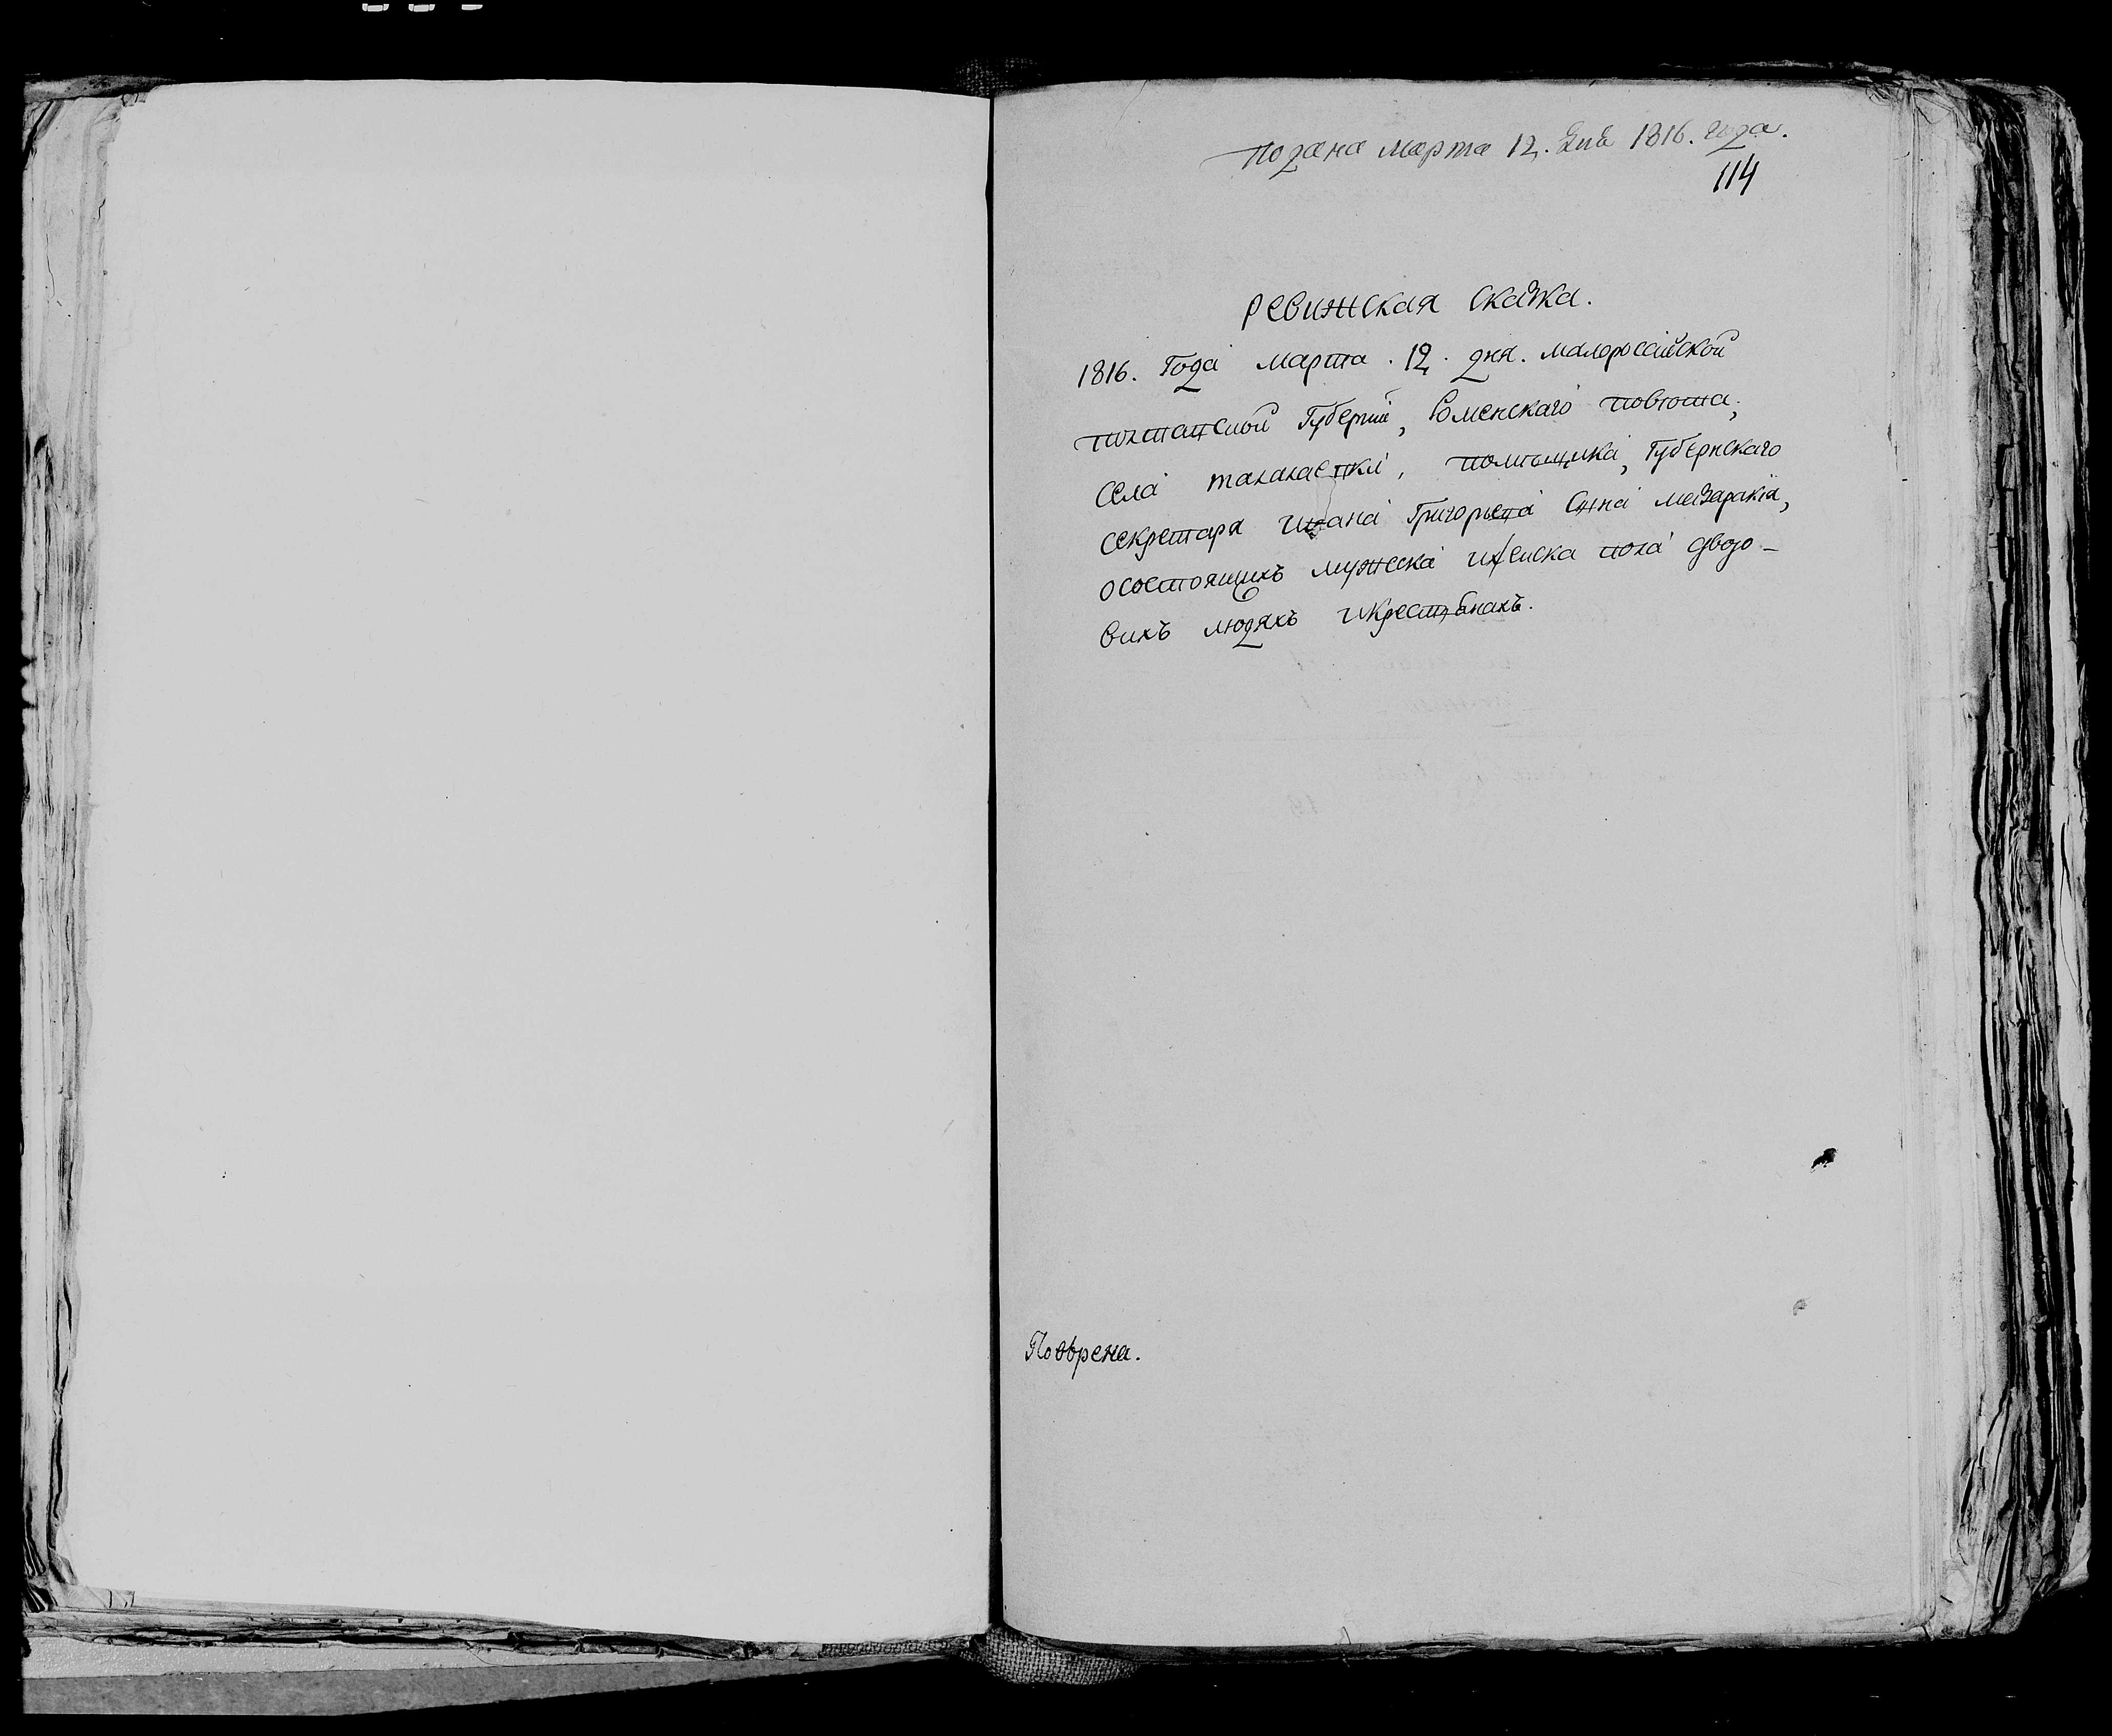 подана марта 12. дня 1816. года.
114
Ревижская скажка.
1816. Года марта. 12. дня. малороссійской
полтавской Губерніи, Роменскаго повюта,
села талалаевки, помѣщика, Губернскаго
секретаря Ивана Григорьева Сина мазаракія,
осостоящихъ мужеска иженска пола дворо-
вихъ людяхъ икрестьянахъ.
Повѣрена.